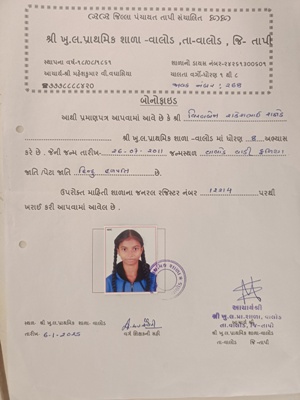 જિલ્લા પંચાયત તાપી સંચાલિત
શ્રી ખુ.લ.પ્રાથમિક શાળા -વાલોડ ,તા-વાલોડ , જિ- તાપી
સ્થાપના વર્ષ-૧૮૭૮/૧૮૬૧ શાળાનો ડાયસ નંબર-૨૪૨૬૧૩૦૦૬૦૧
આચાર્ય-શ્રી મહેશકુમાર વી. ચાલતા વર્ગો-ધોરણ ૧ થી ૮
જાવક નંબર : 268
બોનોફાઇડ
આથી પ્રમાણપત્ર આપવામાં આવે છે કે શ્રી
શ્રી ખુ.લ.પ્રાથમિક શાળા -વાલોડ માં ધોરણ 8 અભ્યાસ
કરે છે . જેની જન્મ તારીખ- 26-07-2011 જન્મસ્થળ
જાતિ પેટા જાતિ હિન્દુ હળપતિ છે.
ઉપરોક્ત માહિતી શાળાના જનરલ રજિસ્ટર નંબર 12214 પરથી
ખરાઈ કરી આપવામાં આવેલ છે .
સ્થળ: શ્રી ખુ.લ.પ્રાથમિક શાળા-વાલોડ
તારીખ: 6-1-2025
વર્ગ શિક્ષકની સહી
આચાર્યશ્રી
શ્રી ખુ.લ.પ્રા.શાળા, વાલોડ
તા.વાલોડ, જિ-તાપી
શ્રી ખુ.લ.પ્રાથમિક શાળા-વાલોડ
તા-વાલોડ જિ-તાપી